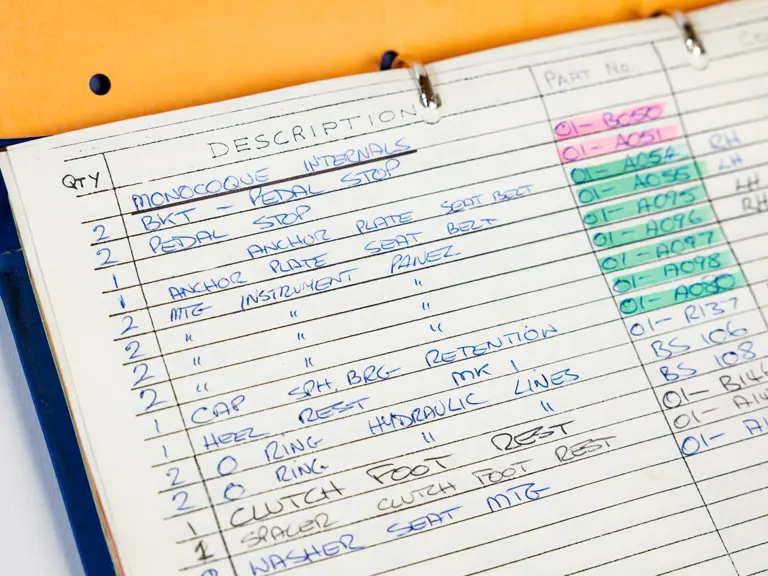 QTY DESCRIPTION PART No.
MONOCOQUE INTERNALS
2 BKT - PEDAL STOP 01-BC50
2 PEDAL STOP 01-A051
1 ANCHOR PLATE SEAT BELT 01-A054 RH
1 ANCHOR PLATE SEAT BELT 01-A055 LH
2 MTG INSTRUMENT PANEL 01-A095 LH
2 " " " 01-A096 RH
2 " " " 01-A097
2 " " " 01-A098
1 CAP SPH. BRG RETENTION 01-A080
1 HEEL REST MK 1 01-R137
2 O RING HYDRAULIC LINES BS 106
2 O RING " " BS 108
1 CLUTCH FOOT REST 01-B146
1 SPACER CLUTCH FOOT REST 01-A14
WASHER SEAT MTG 01-A1